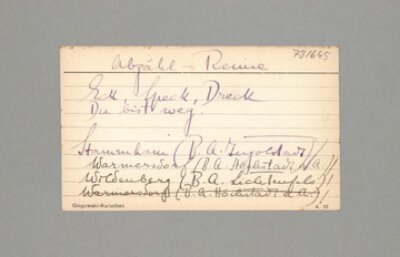 791645
Abzähl - Reime
Eck, Speck, Dreck
Du bist weg.
Stammham (B. A. Ingolstadt)
Warmersdorf (B. A. Höchstadt a/A)
Wildenberg (B. A. Lichtenfels)
Warmersdorf (B. A. Höchstadt a. A.)
Glogowski-Kartothek